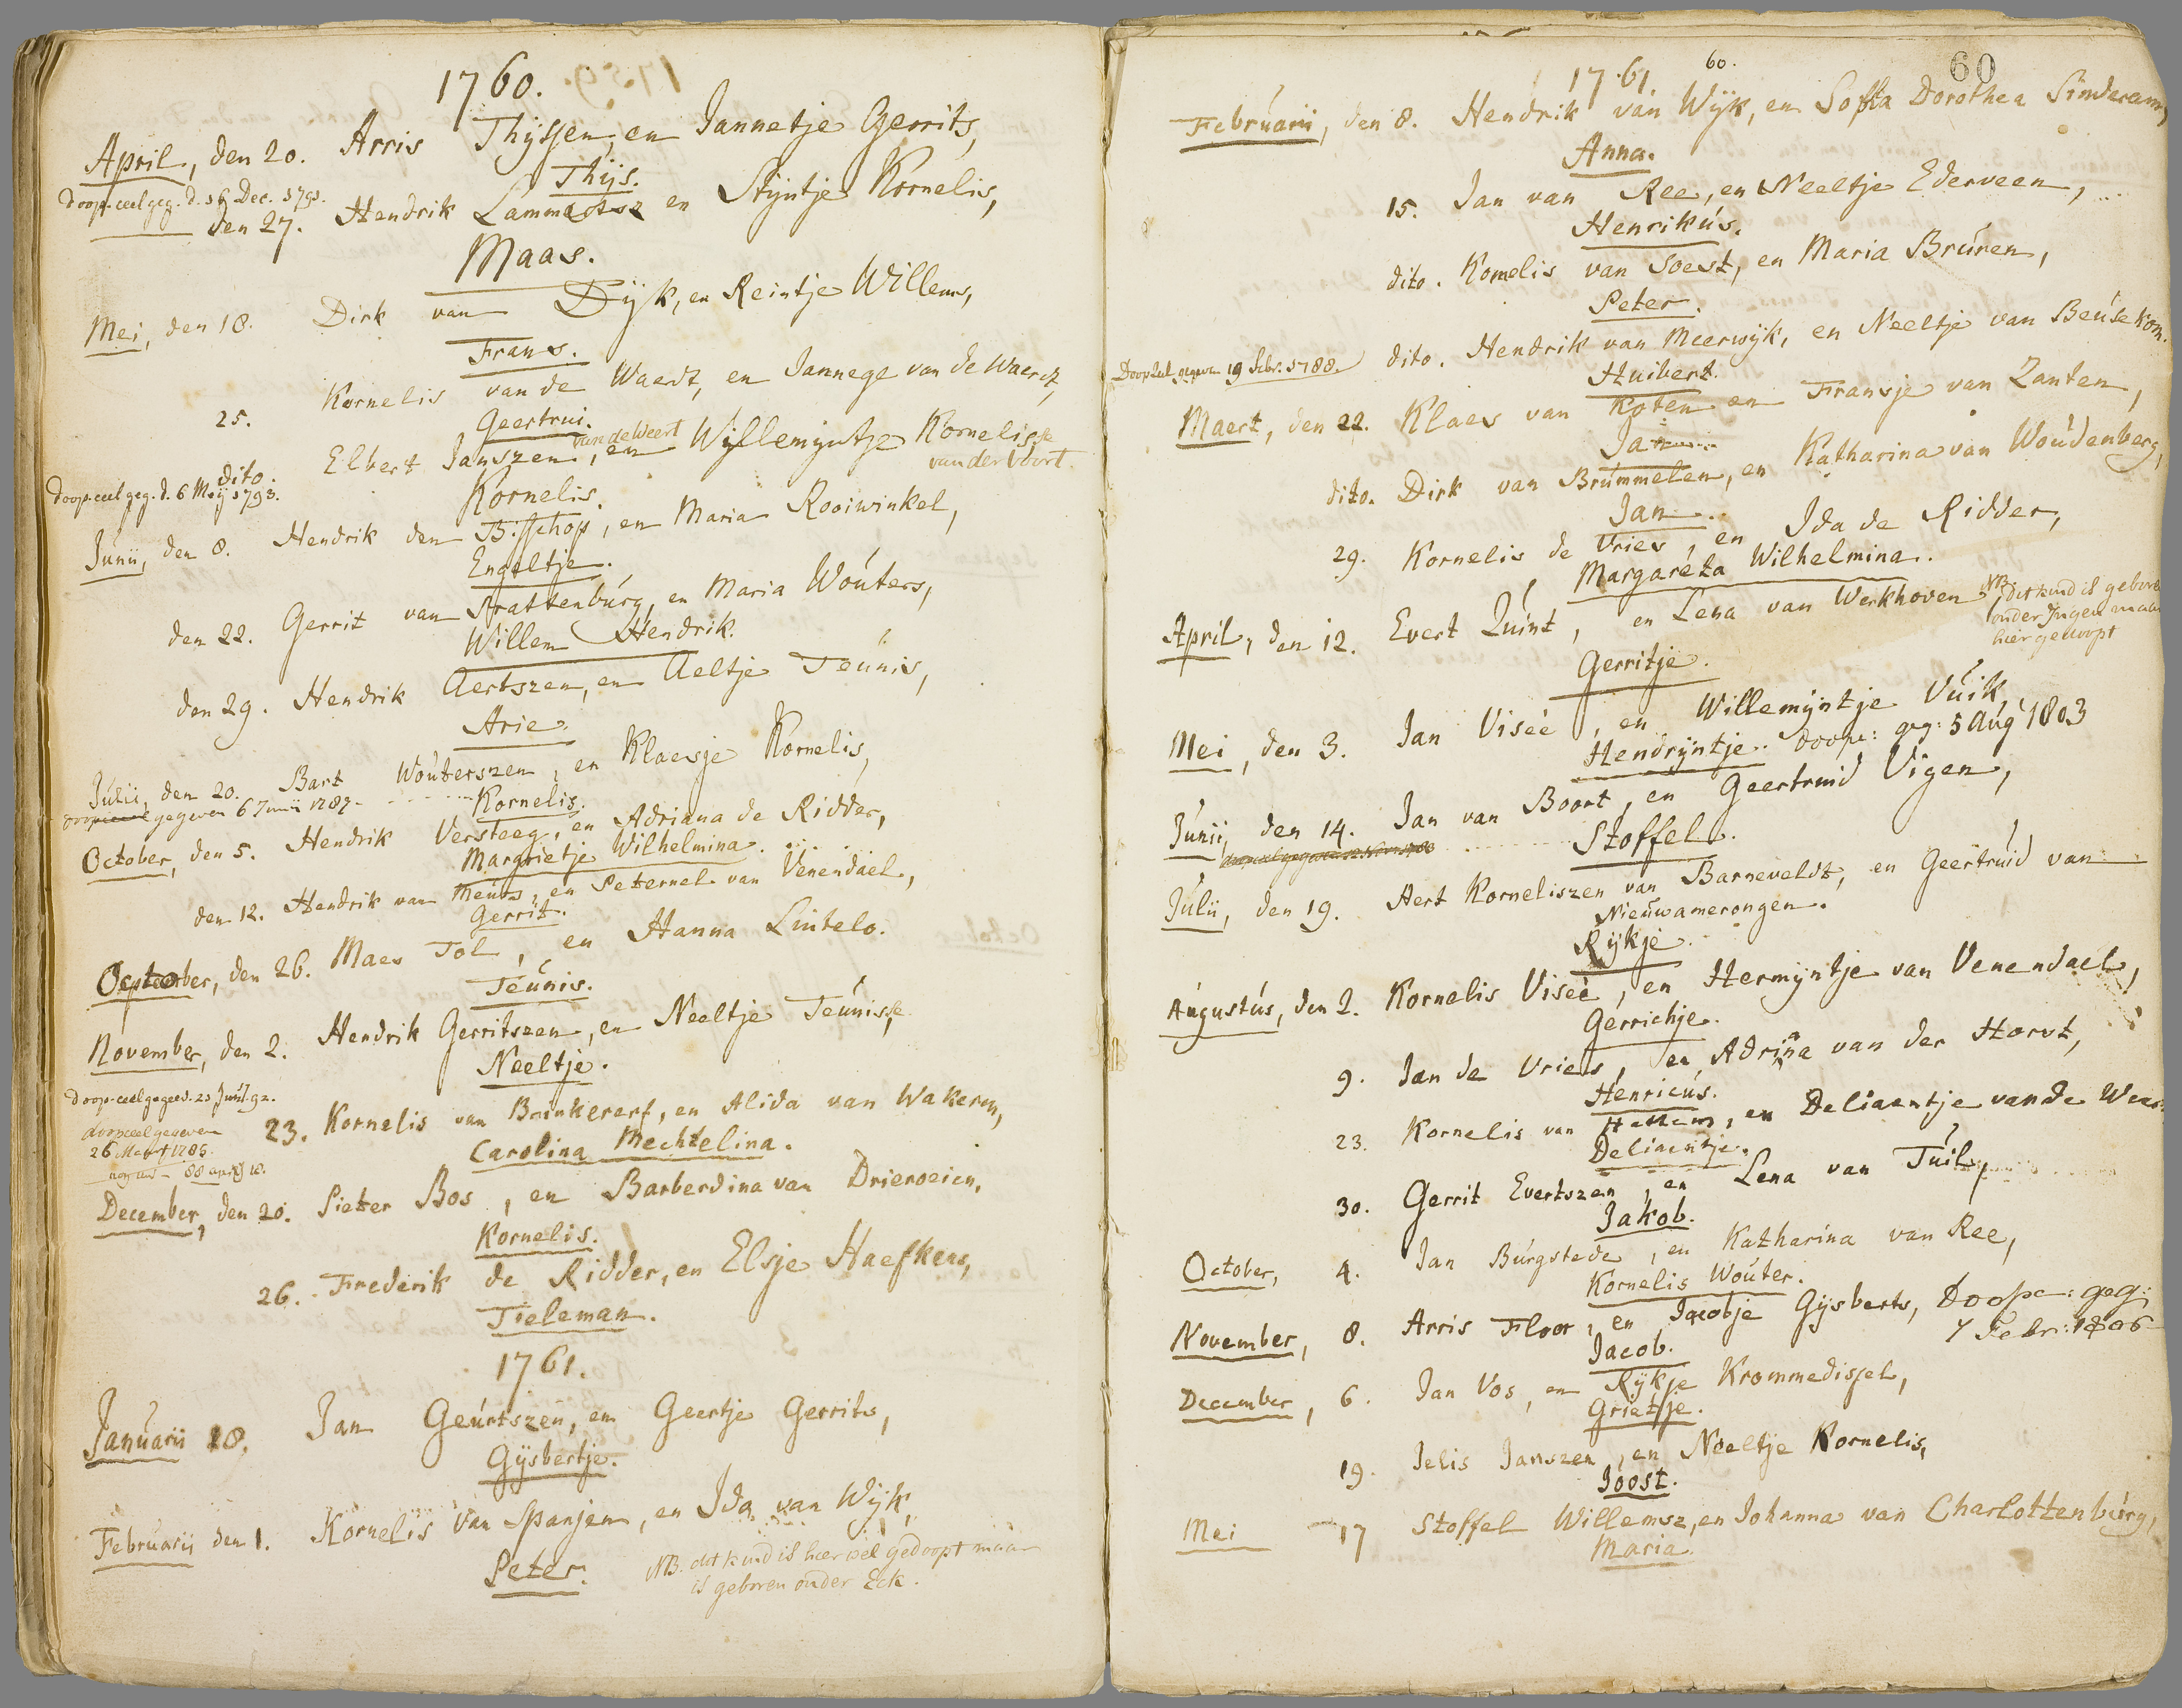 1760.
April, den 20. Arris Thijssen, en Jannetje Gerrits,
Thijs.
Doop-ceel geg. d. 16 Dec. 1791.
den 27. Hendrik Lammertsz en Stijntje Kornelis,
Maas.
Mei, den 18. Dirk van Dijk, en Reintje Willems,
Frans.
25. Kornelis van de Waerdt, en Jannege van de Waerdt,
Geertrui.
van de Weert
dito. Elbert Janszen, en Willemijntje Kornelisse
van der Voort.
Doop-ceel geg. d. 6 Meij 1793.
Kornelis.
Junii, den 8. Hendrik den Bisschop, en Maria Rooiwinkel,
Engeltje.
den 22. Gerrit van Prattenburg, en Maria Wouters,
Willem Hendrik.
den 29. Hendrik Aertszen, en Aeltje Teunis,
Arie.
Julii, den 20. Bart Wouterszen, en Klaesje Kornelis,
doopceel gegeven 6 Junii 1787.
Kornelis.
October, den 5. Hendrik Versteeg, en Adriana de Ridder,
Margrietje Wilhelmina.
den 12. Hendrik van Meurs, en Peternel van Venendael,
Gerrit.
October, den 26. Maes Tol, en Hanna Lintelo.
Teunis.
November, den 2. Hendrik Gerritszen, en Neeltje Teunisse
Neeltje.
Doop-ceel gegeev. 23 Junij 92.
23. Kornelis van Brinkererf, en Alida van Wakeren,
doopceel gegeven
26 Maert 1785.
Carolina Mechtelina.
December, den 20. Pieter Bos, en Barberdina van Drieroeien,
Kornelis.
26. Frederik de Ridder, en Elsje Haefkens,
Tieleman.
1761.
Januarii 18. Jan Geurtszen, en Geertje Gerrits,
Gijsbertje.
Februarii den 1. Kornelis van Spanjen, en Ida van Wijk,
Peter. NB. dit kind is hier wel gedoopt maar
is geboren onder Eck.
1761. 60. 60
Februarii, den 8. Hendrik van Wijk, en Soffia Dorothea Sinderam,
Anna.
15. Jan van Ree, en Neeltje Ederveen,
Henrikus.
dito. Kornelis van Soest, en Maria Bruren,
Peter.
Doopceel gegeven 19 Febr. 1788. dito. Hendrik van Meerwijk, en Neeltje van Beusekom.
Huibert.
Maert, den 22. Klaes van Koten en Fransje van Zanten,
Jan
dito. Dirk van Brummelen, en Katharina van Woudenberg,
Jan.
29. Kornelis de Vries, en Ida de Ridder,
Margareta Wilhelmina.
April, den 12. Evert Quint, en Lena van Werkhoven
NB dit kind is geboren
onder Ingen maar
hier gedoopt
Gerritje.
Mei, den 3. Jan Viseé, en Willemijntje Vuik,
Hendrijntje. doopc: geg: 5 Aug 1803
Junii, den 14. Jan van Boort, en Geertruid Vigen,
Stoffel.
Julii, den 19. Aert Korneliszen van Barneveldt, en Geertruid van
Nieuwamerongen.
Rijkje.
Augustus, den 2. Kornelis Viseé, en Hermijntje van Venendael,
Gerrichje.
9. Jan de Vries, en Adriana van der Horst,
Henricus.
23. Kornelis van Hattem, en Deliaentje van de Weer
Deliaentje.
30. Gerrit Evertszen, en Lena van Tuil,
Jakob.
October, 4. Jan Burgstede, en Katharina van Ree,
Kornelis Wouter.
November, 8. Arris Floor, en Jacobje Gijsberts, Doopc: geg:
7 Febr: 1806
Jacob.
December, 6. Jan Vos, en Rijkje Krommedissel,
Grietje.
19. Jelis Janszen, en Neeltje Kornelis,
Joost.
Mei 17 Stoffel Willemsz, en Johanna van Charlottenburg,
Maria.